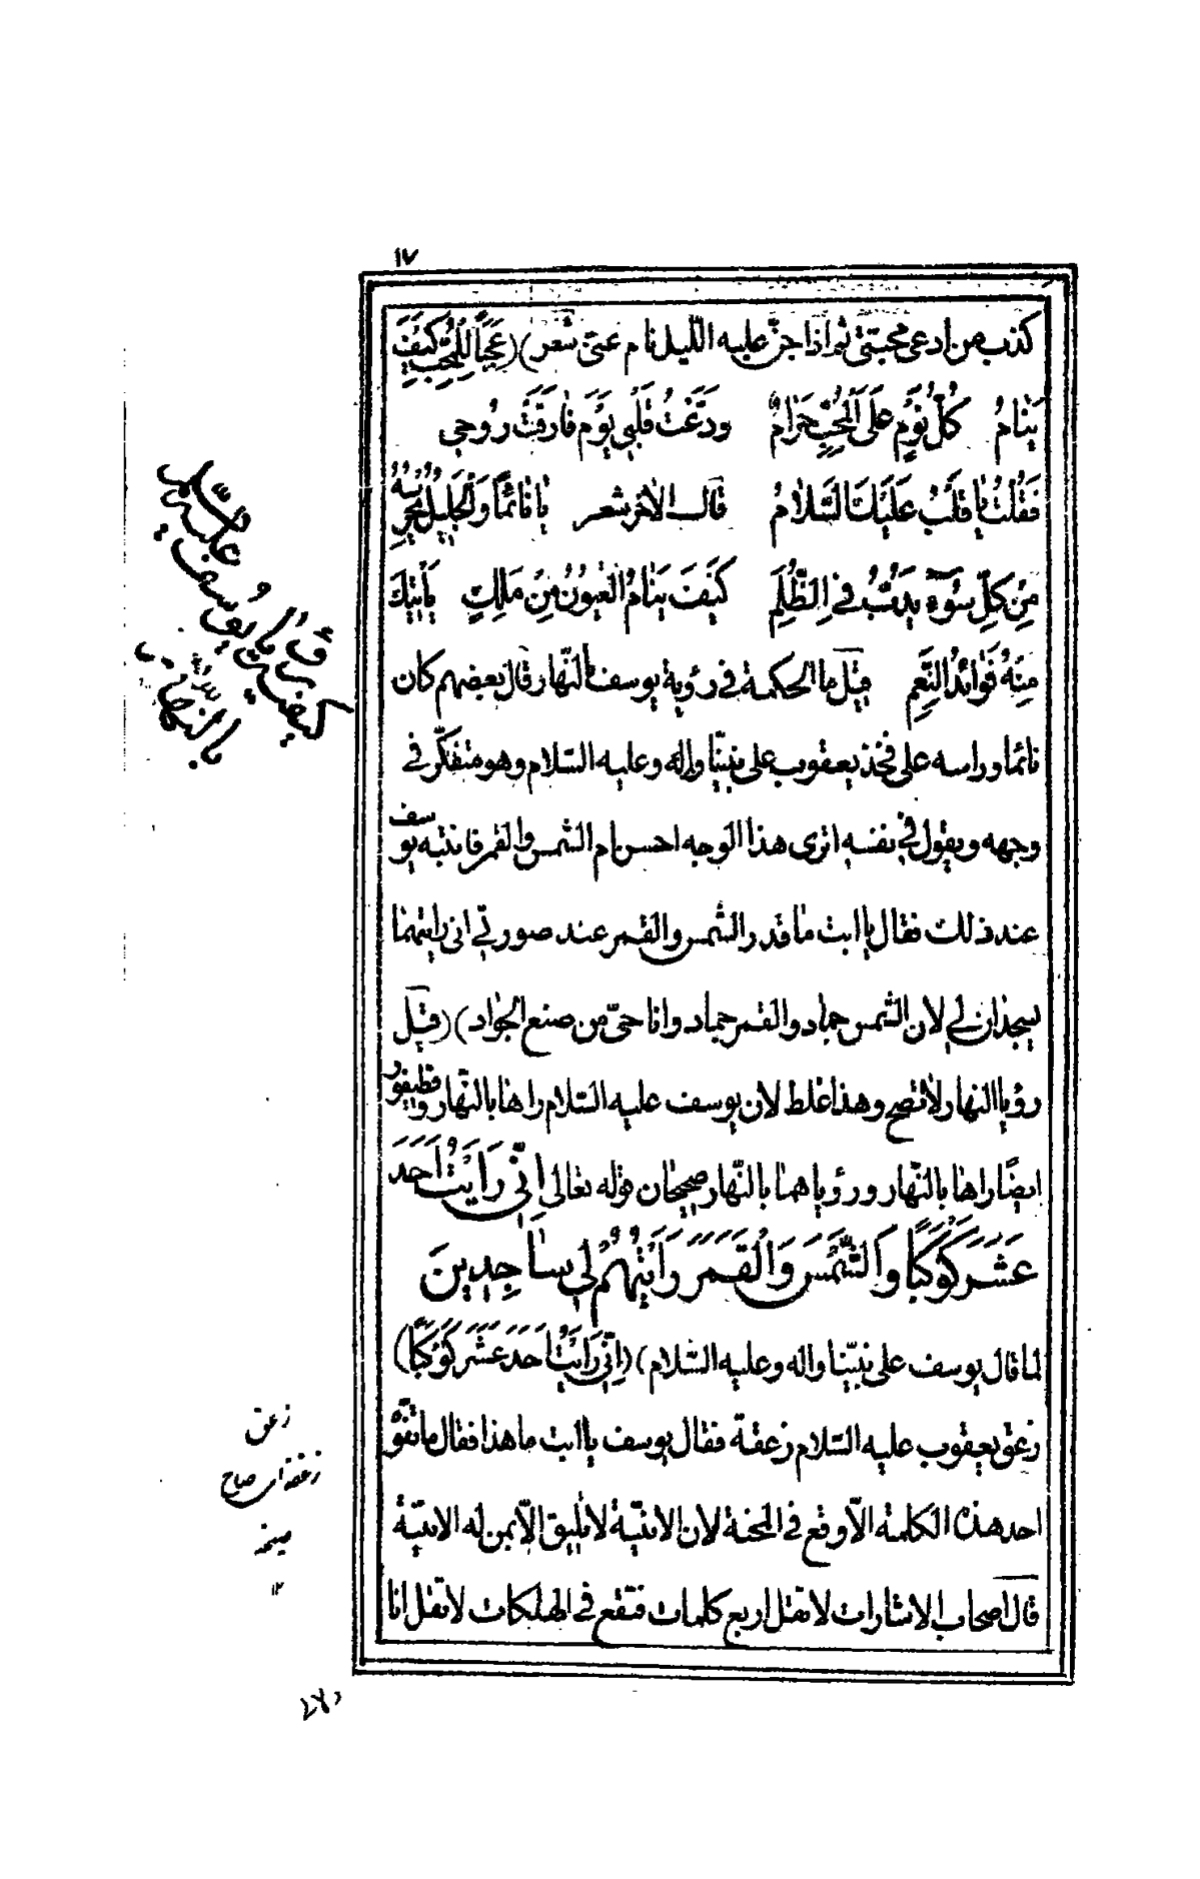 ١٧
كذب من ادعى محبتى ثم اذا جن عليه الليل نام عنى شعر) (عَجَباً لِلْمُحِبِّ كَيْفَ
يَنامُ كُلُّ نَوْمٍ عَلَى الْمُحِبِّ حَرامٌ وَدَّعْتُ قَلْبى يَوْمَ فارَقْتُ رُوحى
فَقُلْتُ يا قَلْبُ عَلَيْكَ السَّلامُ قال الاخر شعر يا نائماً وَالْجَليلُ يَحْرِسُهُ
مِنْ كُلِّ سُوءٍ يَدُبُّ فِى الظُّلَمِ كَيْفَ يَنامُ الْعُيُونُ مِنْ مَلِكٍ يَأْتيكَ
مِنْهُ فَوائِدُ النِّعَمِ قيل ما الحكمة فى رؤية يوسف بالنّهار قال بعضهم كان
نائما وراسه على فخذ يعقوب على نبيّنا واله وعليه السّلام وهو متفكّر فى
وجهه ويقول فى نفسه اترى هذا الوجه احسن ام الشمس والقمر فانتبه يوسف
عند ذلك فقال يا ابت ما قدر الشّمس والقمر عند صورتى انى رايتهما
يسجدان لى لان الشّمس جماد والقمر جماد وانا حىّ من صنع الجواد) (قيل
رؤيا النهار لا تصح وهذا غلط لان يوسف عليه السّلام راها بالنّهار وقطيفور
ايضًا راها بالنّهار ورؤياهما بالنّهار صحيحان قوله تعالى اِنّى رَاَيْتُ اَحَدَ
عَشَرَ كَوْكَبًا وَالشَّمْسَ وَالْقَمَرَ رَاَيْتُهُمْ لى ساجِدينَ
لما قال يوسف على نبيّنا واله وعليه السّلام) (اِنّى رَاَيْتُ اَحَدَ عَشَرَ كَوْكَبًا)
زعق يعقوب عليه السّلام زعقة فقال يوسف يا ابت ما هذا فقال ما تفوّه
احد هذه الكلمة الّا وقع فى المحنة لان الانيّة لا تليق الّا بمن له الانيّة
قال اصحاب الاشارات لا تقل اربع كلمات فتقع فى الهلكات لا تقل انا
رؤيا يوسف عليه السّلام
كيف
بالنّهار
زعق
زعقة اى صاح
صيحة
١٢